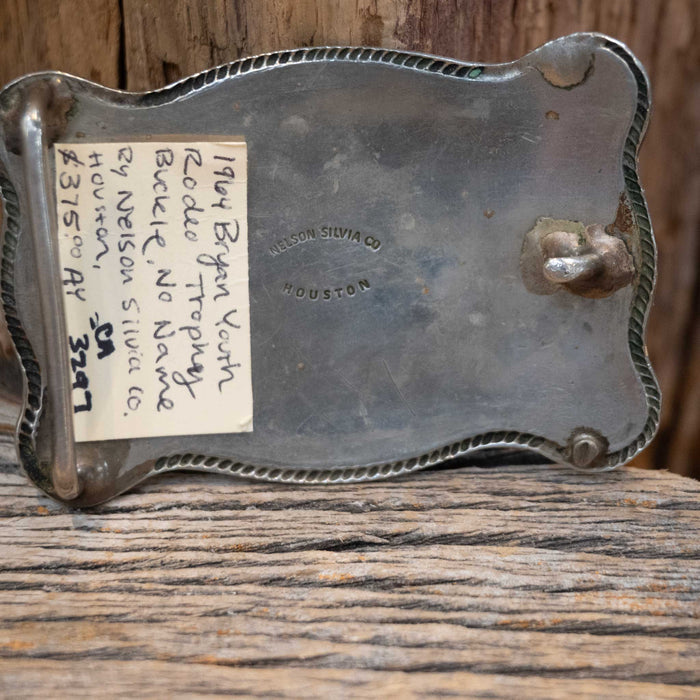 1964 Bryan Youth
Rodeo Trophy
Buckle, No Name
By Nelson Silvia Co.
Houston,
$375.00 AY 3297
NELSON SILVIA CO
HOUSTON